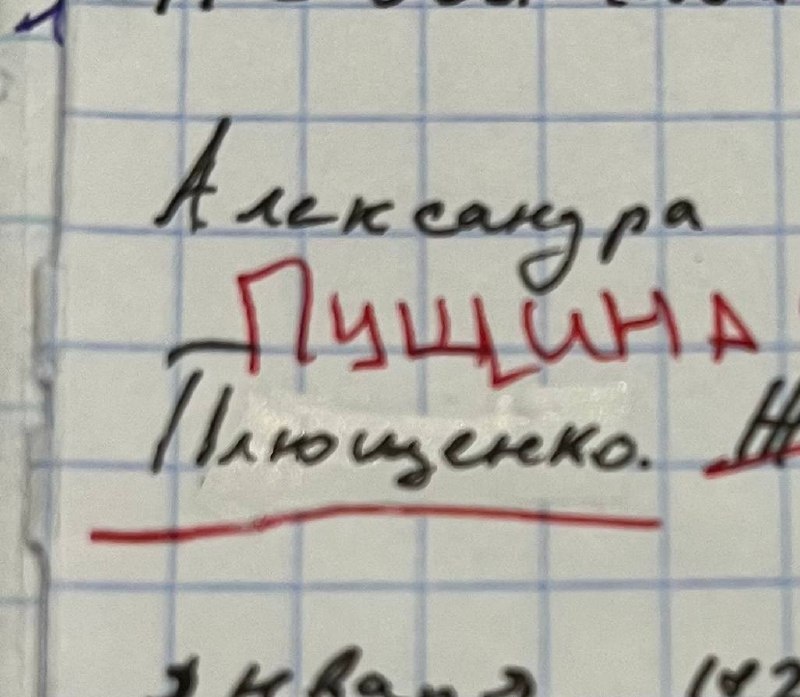 Александра
ПУЩИНА
Плющенко.